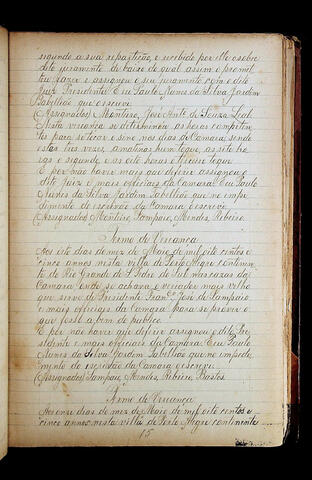 segundo a sua repartição, e recibido por elle o sobre
dito juramento de baixo do qual assim o promet
teu fazer e assignou o seu juramento com o dito
Juiz Presidente Eu Paulo Nunes da Silva Jardim
Tabellião que o escrevi
(Assignados) Monteiro, José Antº de Souza Leal
Nesta veriança se determinou as horas competen
tes para se tocar o sino, nos dias de Camara, sendo
estas tres vezes, a matinas hum toque, as sete ho-
ras o segundo e as oito horas o ultimo toque
E por não haver mais que deferir assignou o
dito Juiz e mais officiaes da Camara: Eu Paulo
Nunes da Silva Jardim Tabellião que no impe-
dimento do escrivão da Camara o escrevi
(Assignados) Monteiro, Sampaio, Mendes, Ribeiro.
Termo de Veriança
Aos oito dias do mez de Maio de mil oito centos e
cinco annos nesta villa de Porto Alegre continen
te do Rio Grande de S. Pedro do Sul nas cazas da
Camara onde se achava o veriador mais velho
que serve de Presidente Franco José de Sampaio
e mais officiaes da Camara para se prover o
que fosse a bem do publico
E por não haver que deferir assignou o dito Pre
sidente e mais officiaes da Camara: Eu Paulo
Nunes da Silva Jardim Tabellião que no impedi-
mento do escrivão da Camara o escrevi
(Assignados) Sampaio, Mendes, Ribeiro, Bastos.
Termo de Veriança
Aos onze dias do mez de Maio de mil oito centos e
cinco annos nesta villa de Porto Alegre continente
15